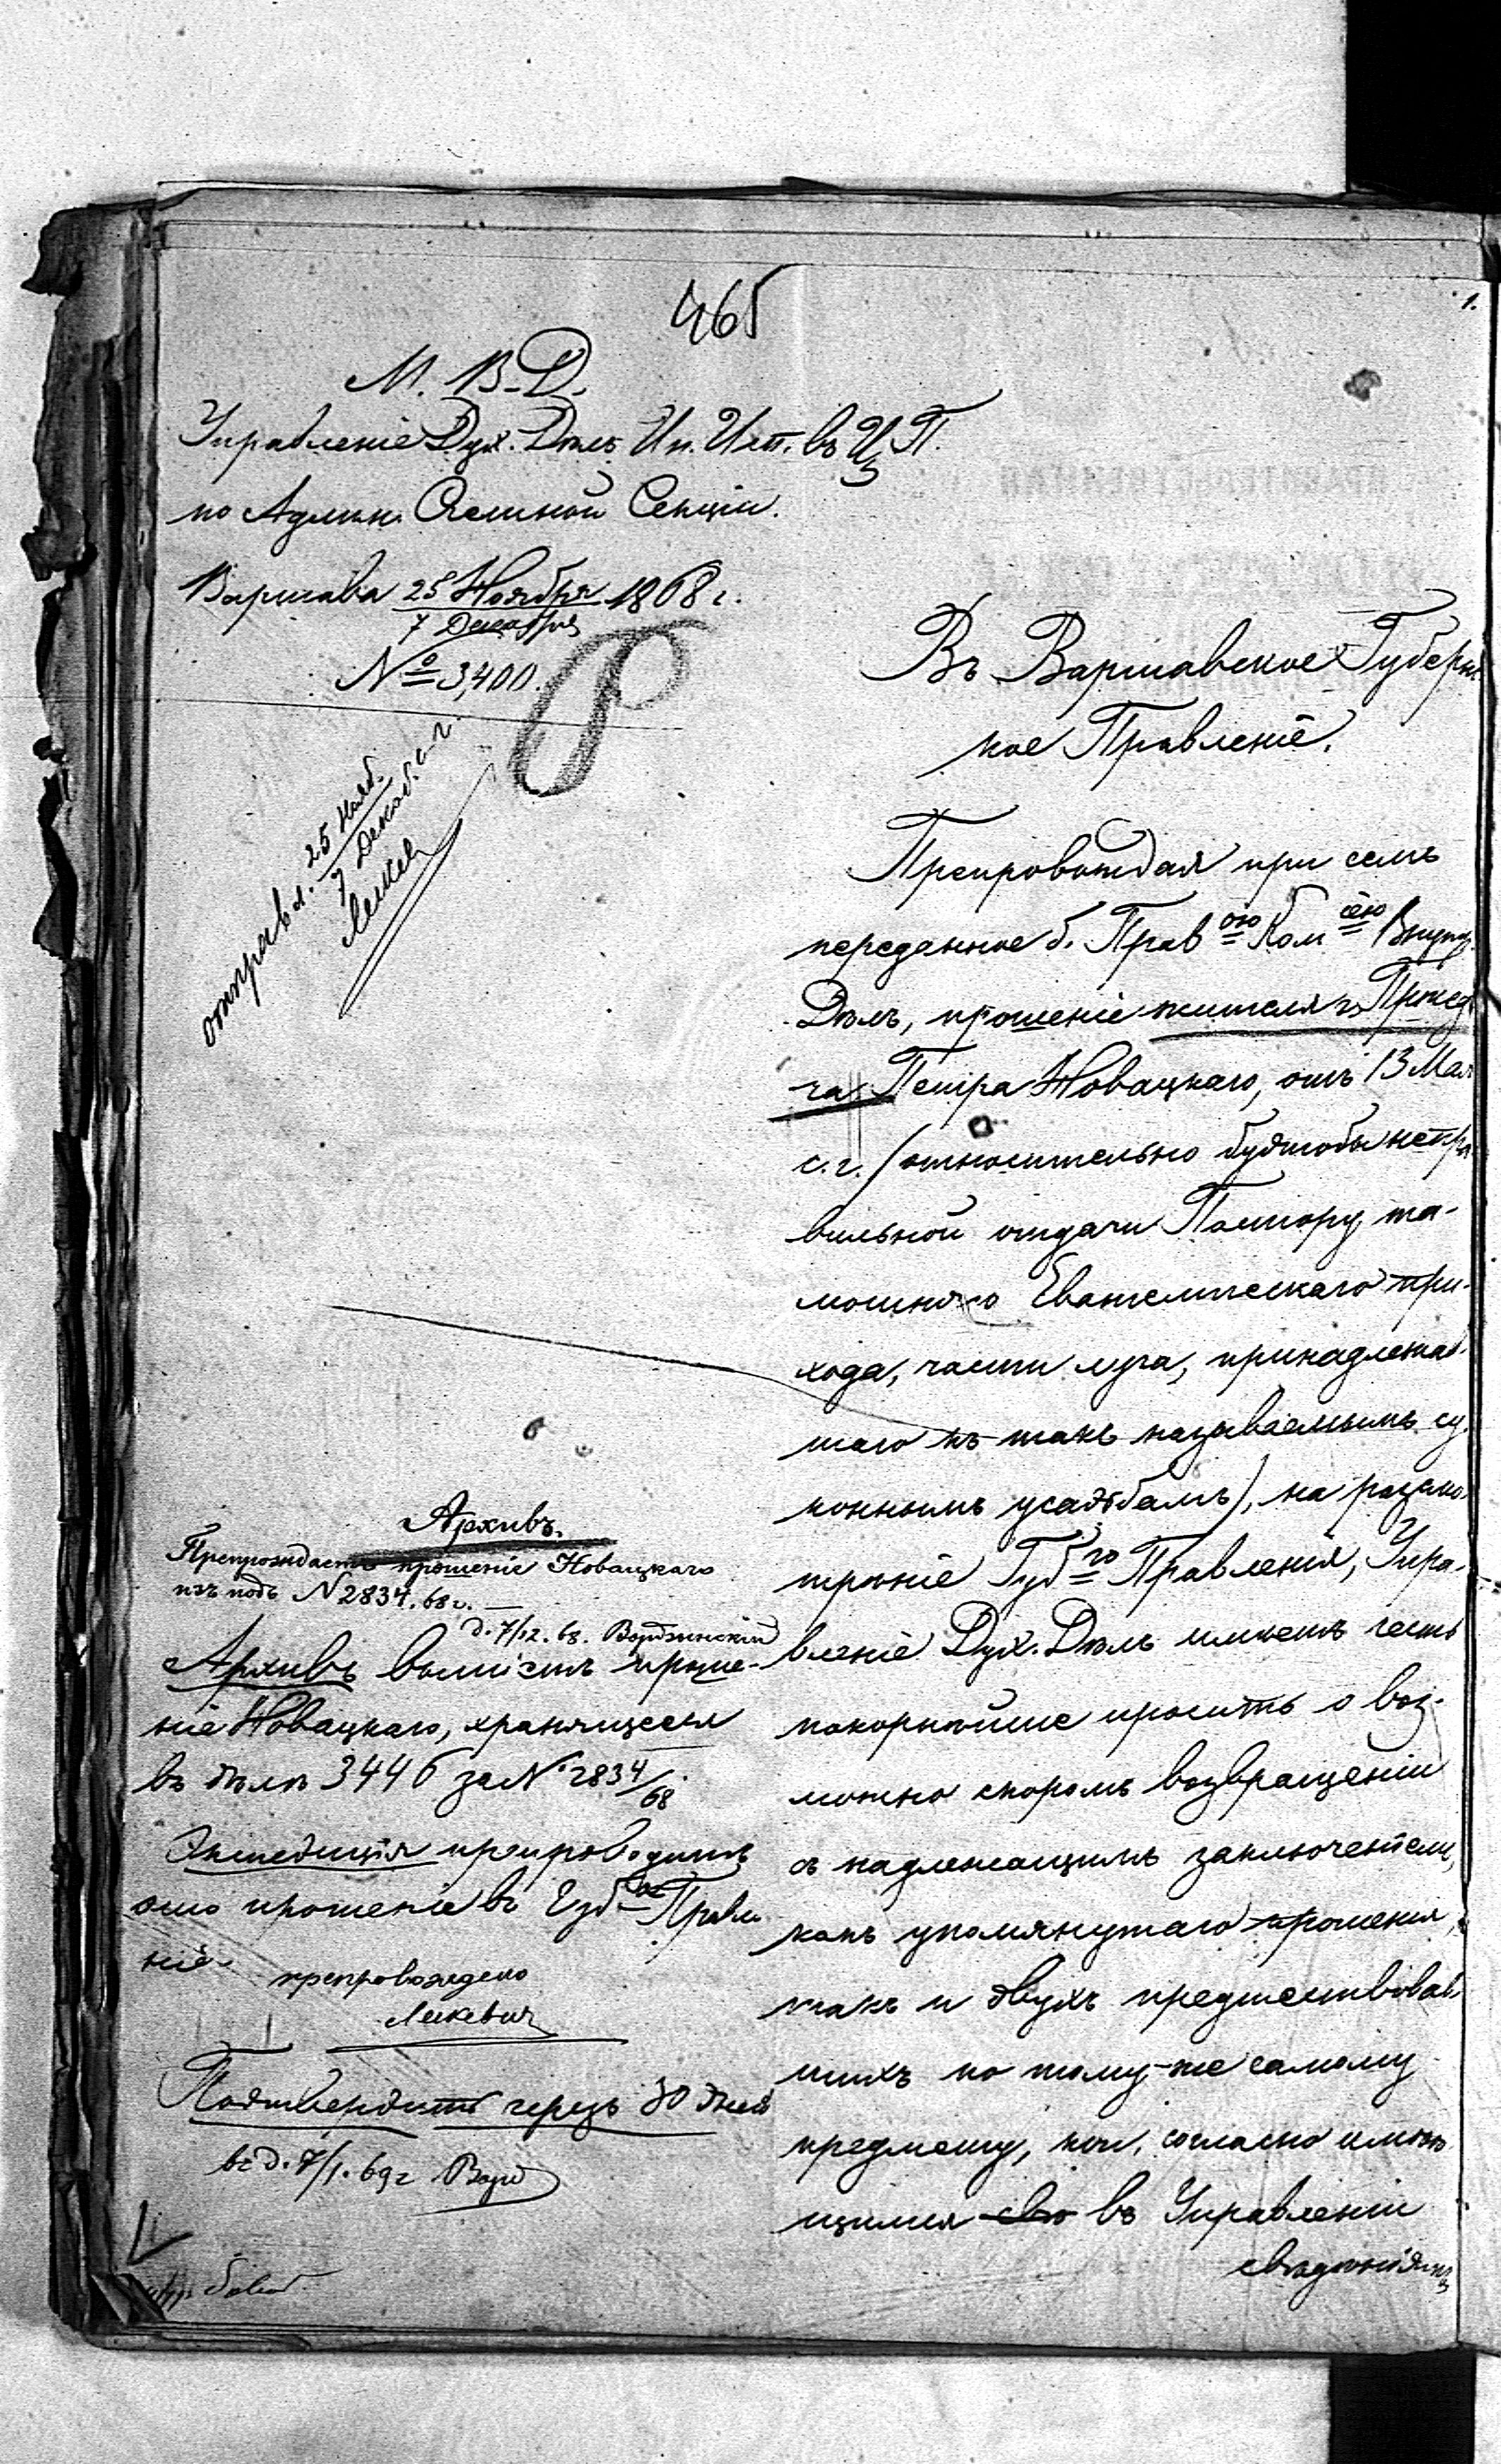 465
1.
М. В. Д.
Управленіе Дух. Дѣлъ Ин. Исп. въ Ц. П.
по Админ. Счетной Секціи.
Варшава 25 Ноября 1868 г.
7 Декабря
№ 3,400.
отправл. 25 Нояб.
7 Декаб. с. г.
Въ Варшавское Губернс
кое Правленіе.
Препровождая при семъ
переданное б. Прав ою Ком сіею Внутр.
Дѣлъ, прошеніе жителя г. Пржед
ча Петра Новацкаго, отъ 13 Мая
с. г. (относительно будтобы непра
вильной отдачи Пастору та-
мошняго Евангелическаго при-
хода, части луга, принадлежав
шаго къ такъ называемымъ су
коннымъ усадьбамъ), на разсмо
трѣніе Губ го Правленія, Упра-
вленіе Дух. Дѣлъ имѣетъ честь
покорнѣйше просить о воз-
можно скоромъ возвращеніи
съ надлежащимъ заключеніемъ,
какъ упомянутаго прошенія,
такъ и двухъ предшествовав
шихъ по тому-же самому
предмету, кои, согласно имѣю
щимся въ Управленіи
свѣдѣніямъ
Архивъ.
Препровождаетъ прошеніе Новацкаго
изъ подъ N 2834. 68 г. —
д. 7/12. 68.
Архивъ вышіетъ проше-
ніе Новацкаго, хранящееся
въ дѣлѣ 3446 за N 2834/68.
Экспедиція препроводитъ
оно прошеніе въ Губ ое Правле
ніе.
препровождено
Лескевичъ
Подтвердить черезъ 30 дней
въ д. 7/1. 69 г